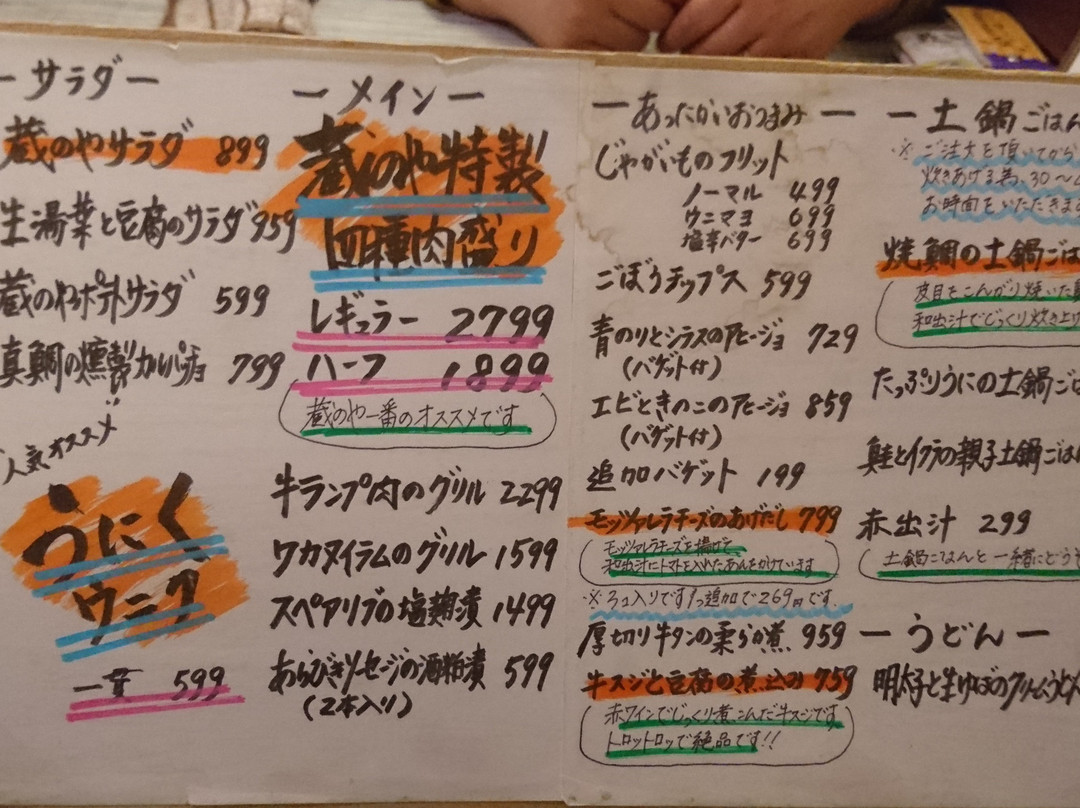 ーサラダー
蔵のやサラダ 899
生湯葉と豆腐のサラダ 959
蔵のやポテトサラダ 599
真鯛の燻製カルパッチョ 799
人気オススメ
うにく
ウニク
一貫 599
ーメインー
蔵のや特製
四種肉盛り
レギュラー 2799
ハーフ 1899
蔵のや一番のオススメです
牛ランプ肉のグリル 2299
ワカヌイラムのグリル 1599
スペアリブの塩麹漬 1499
あらびきソーセージの酒粕漬 599
(2本入り)
ーあったかいおつまみー
じゃがいものフリット
ノーマル 499
ウニマヨ 699
塩辛バター 699
ごぼうチップス 599
青のりとシラスのアヒージョ 729
(バゲット付)
エビときのこのアヒージョ 859
(バゲット付)
追加バゲット 199
モッツァレラチーズのあげだし 799
モッツァレラチーズを揚げて
和出汁にトマトを入れたあんをかけています
※3コ入りです 1つ追加で269円です
厚切り牛タンの柔らか煮 959
牛スジと豆腐の煮込み 759
赤ワインでじっくり煮こんだ牛スジです
トロットロッで絶品です!!
ー土鍋ごはん
※ご注文を頂いてから
炊きあげる為、30〜
お時間をいただきま
焼鯛の土鍋ごは
皮目をこんがり焼いた
和出汁でじっくり炊き上げ
たっぷりうにの土鍋ご
鮭とイクラの親子土鍋ごは
赤出汁 299
土鍋ごはんと一緒にどうぞ
ーうどんー
明太子と生ゆばのクリームうどん